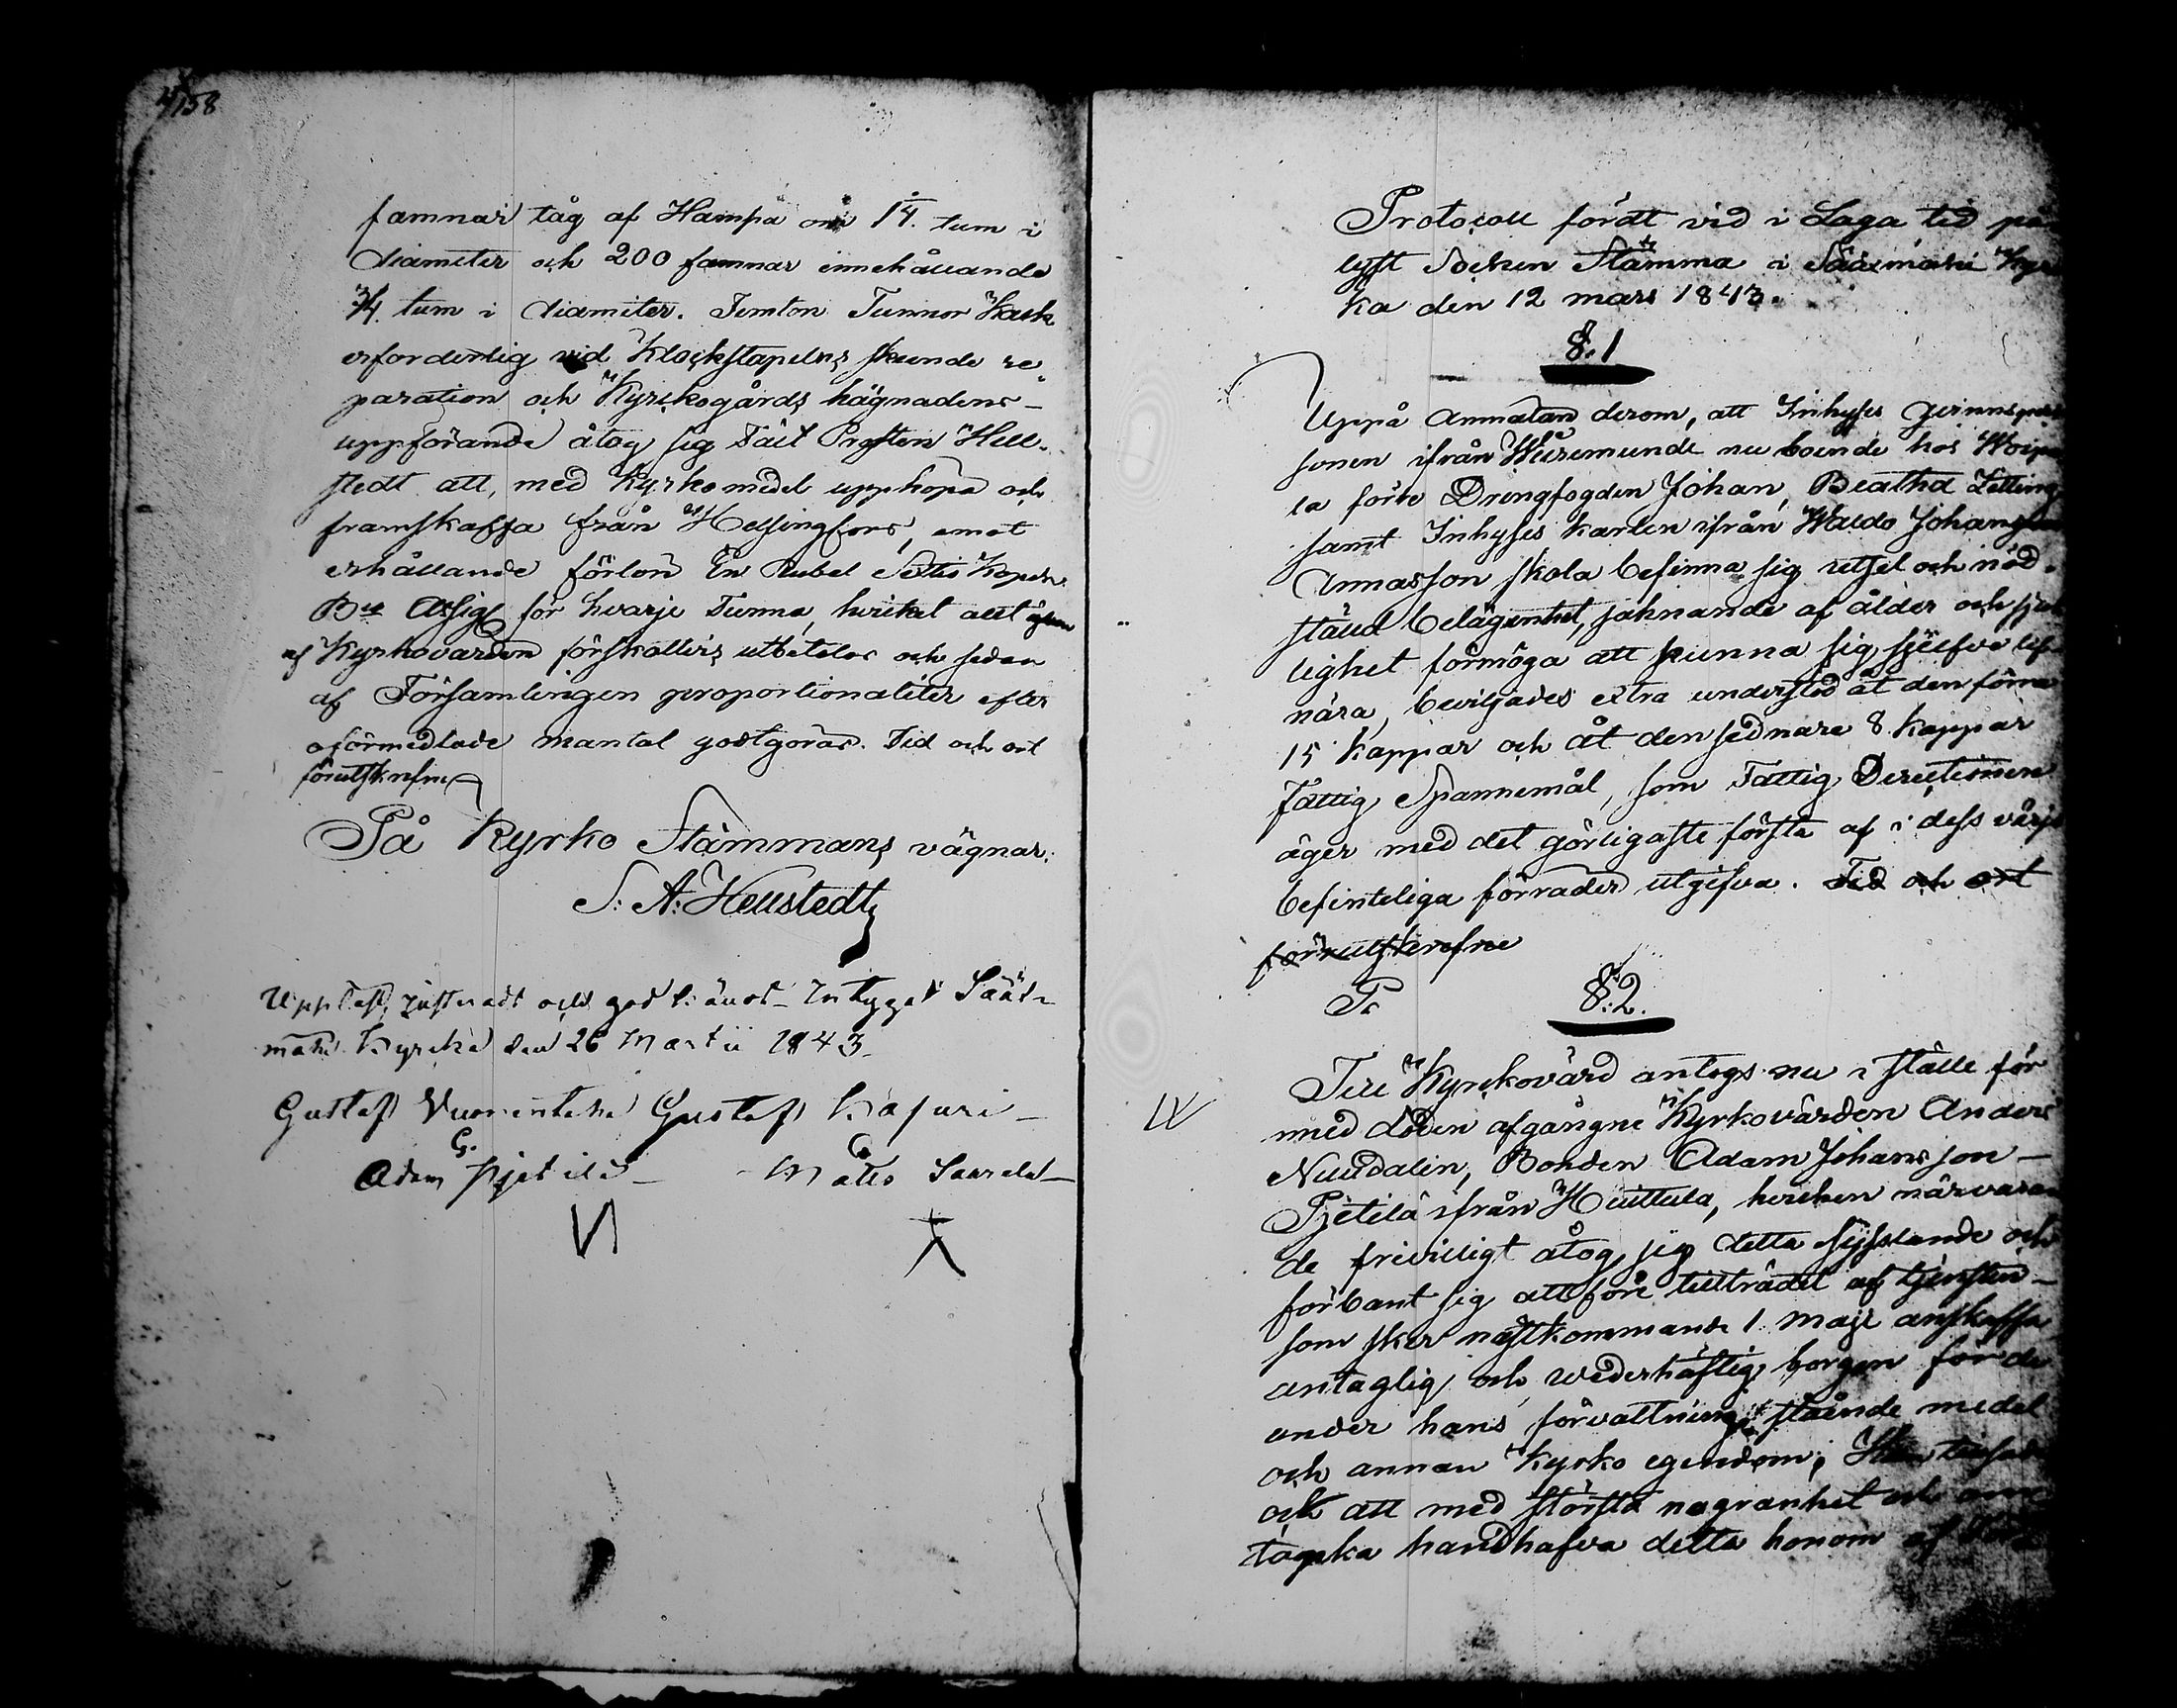 158
famnar tåg af Hampa om 1¼ tum i
diameter och 200 famnar innehållande
3/4 tum i diameter. Femton Tunnor Kalk
erforderlig vid Klockstapelns skeende re-
paration och Kyrckogårds hägnadens
uppförande åtog sig Tit Prosten Hell-
stedt att, med Kyrkomedel uppköpa och
framskaffa från Helsingfors, emot
erhållande förlön En Rubel Kopek
B:co Assig för hvarje Tunna, hvilket allt
af Kyrkovärden förskottvis utbetalas och sedan
af Församlingen proportionaliter efter
oförmedlade mantal godtgöras. Tid och ort
förutskrefne
På Kyrko Stämmans vägnar:
S: A: Hellstedt
Uppläst, justeradt och godkändt intygat Sääx-
mäki Kyrcka den 26 Martii 1843.
Gustaf Vuorentaka Gustaf Kajuri
Adam G. Pjetilä Matts Saarela
Protocoll fördt vid i Laga tid på-
lyst Socken Stämma i Sääxmäki Kyr
ka den 12 mars 1843.
§.1
Uppå anmälan derom, att Inhyses qvinnsper
sonen ifrån nu boende hos Woipa
la förre Drengfogden Johan, Beatha
samt Inhyses karlen ifrån Waldo Johan
Annasson skola befinna sig utfel och nöd-
ställd belägenhet, saknande af ålder och sjuk
lighet förmöga att kunna sig sjelfve lif-
nära, beviljades extra understöd åt den förra
15 kappar och åt den sednare 8 kappar
fattig Spannemål, som Fattig Directionen
äger med det görligaste första af i dess värjo
befinteliga förråder utgifva. Tid och ort
förrutskrefne
Pr
§.2.
Till Kyrckovärd antogs nu i ställe för
med döden afgångne Kyrkovärden Anders
Nuudalin, Bonden Adam Johansson
Pjetilä ifrån Huittula, hvilken närvaran
de frivilligt åtog sig detta sysslande och
förbant sig att före tillträdet af tjensten
som sker nästkommande 1 maji anskaffa
antaglig och wederhäftig borgen för de
under hans förvaltning stående medel
och annan Kyrko egendom;
ock att med största nogranhet och omm
tanka handhafva detta honom af